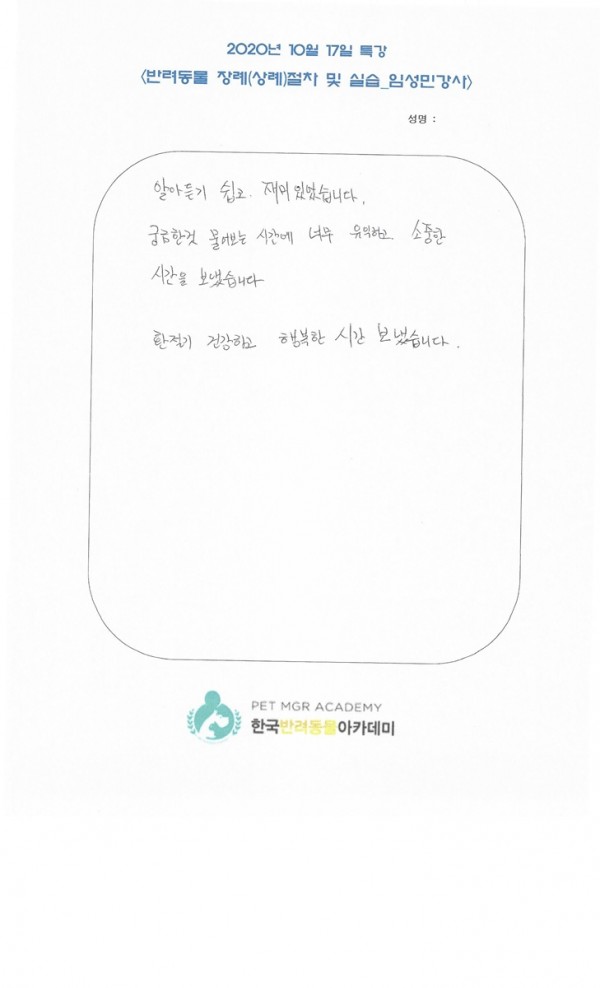 2020년 10월 17일 특강
<반려동물 장례(상례)절차 및 실습_임성민강사>
성명 :
알아듣기 쉽고 재미있었습니다.
궁금한것 물어보는 시간에 너무 유익하고 소중한
시간을 보냈습니다
환절기 건강하고 행복한 시간 보냈습니다.
PET MGR ACADEMY
한국반려동물아카데미